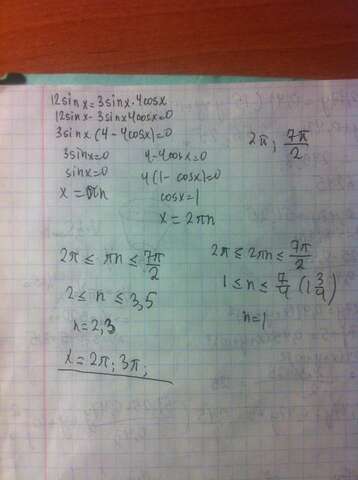 12sinx=3sinx·4cosx
12sinx-3sinx4cosx=0
3sinx(4-4cosx)=0
2π; 7π/2
3sinx=0
sinx=0
x=πn
4-4cosx=0
4(1-cosx)=0
cosx=1
x=2πn
2π≤πn≤7π/2
2≤n≤3,5
n=2,3
x=2π; 3π;
2π≤2πn≤7π/2
1≤n≤7/4 (1 3/4)
n=1